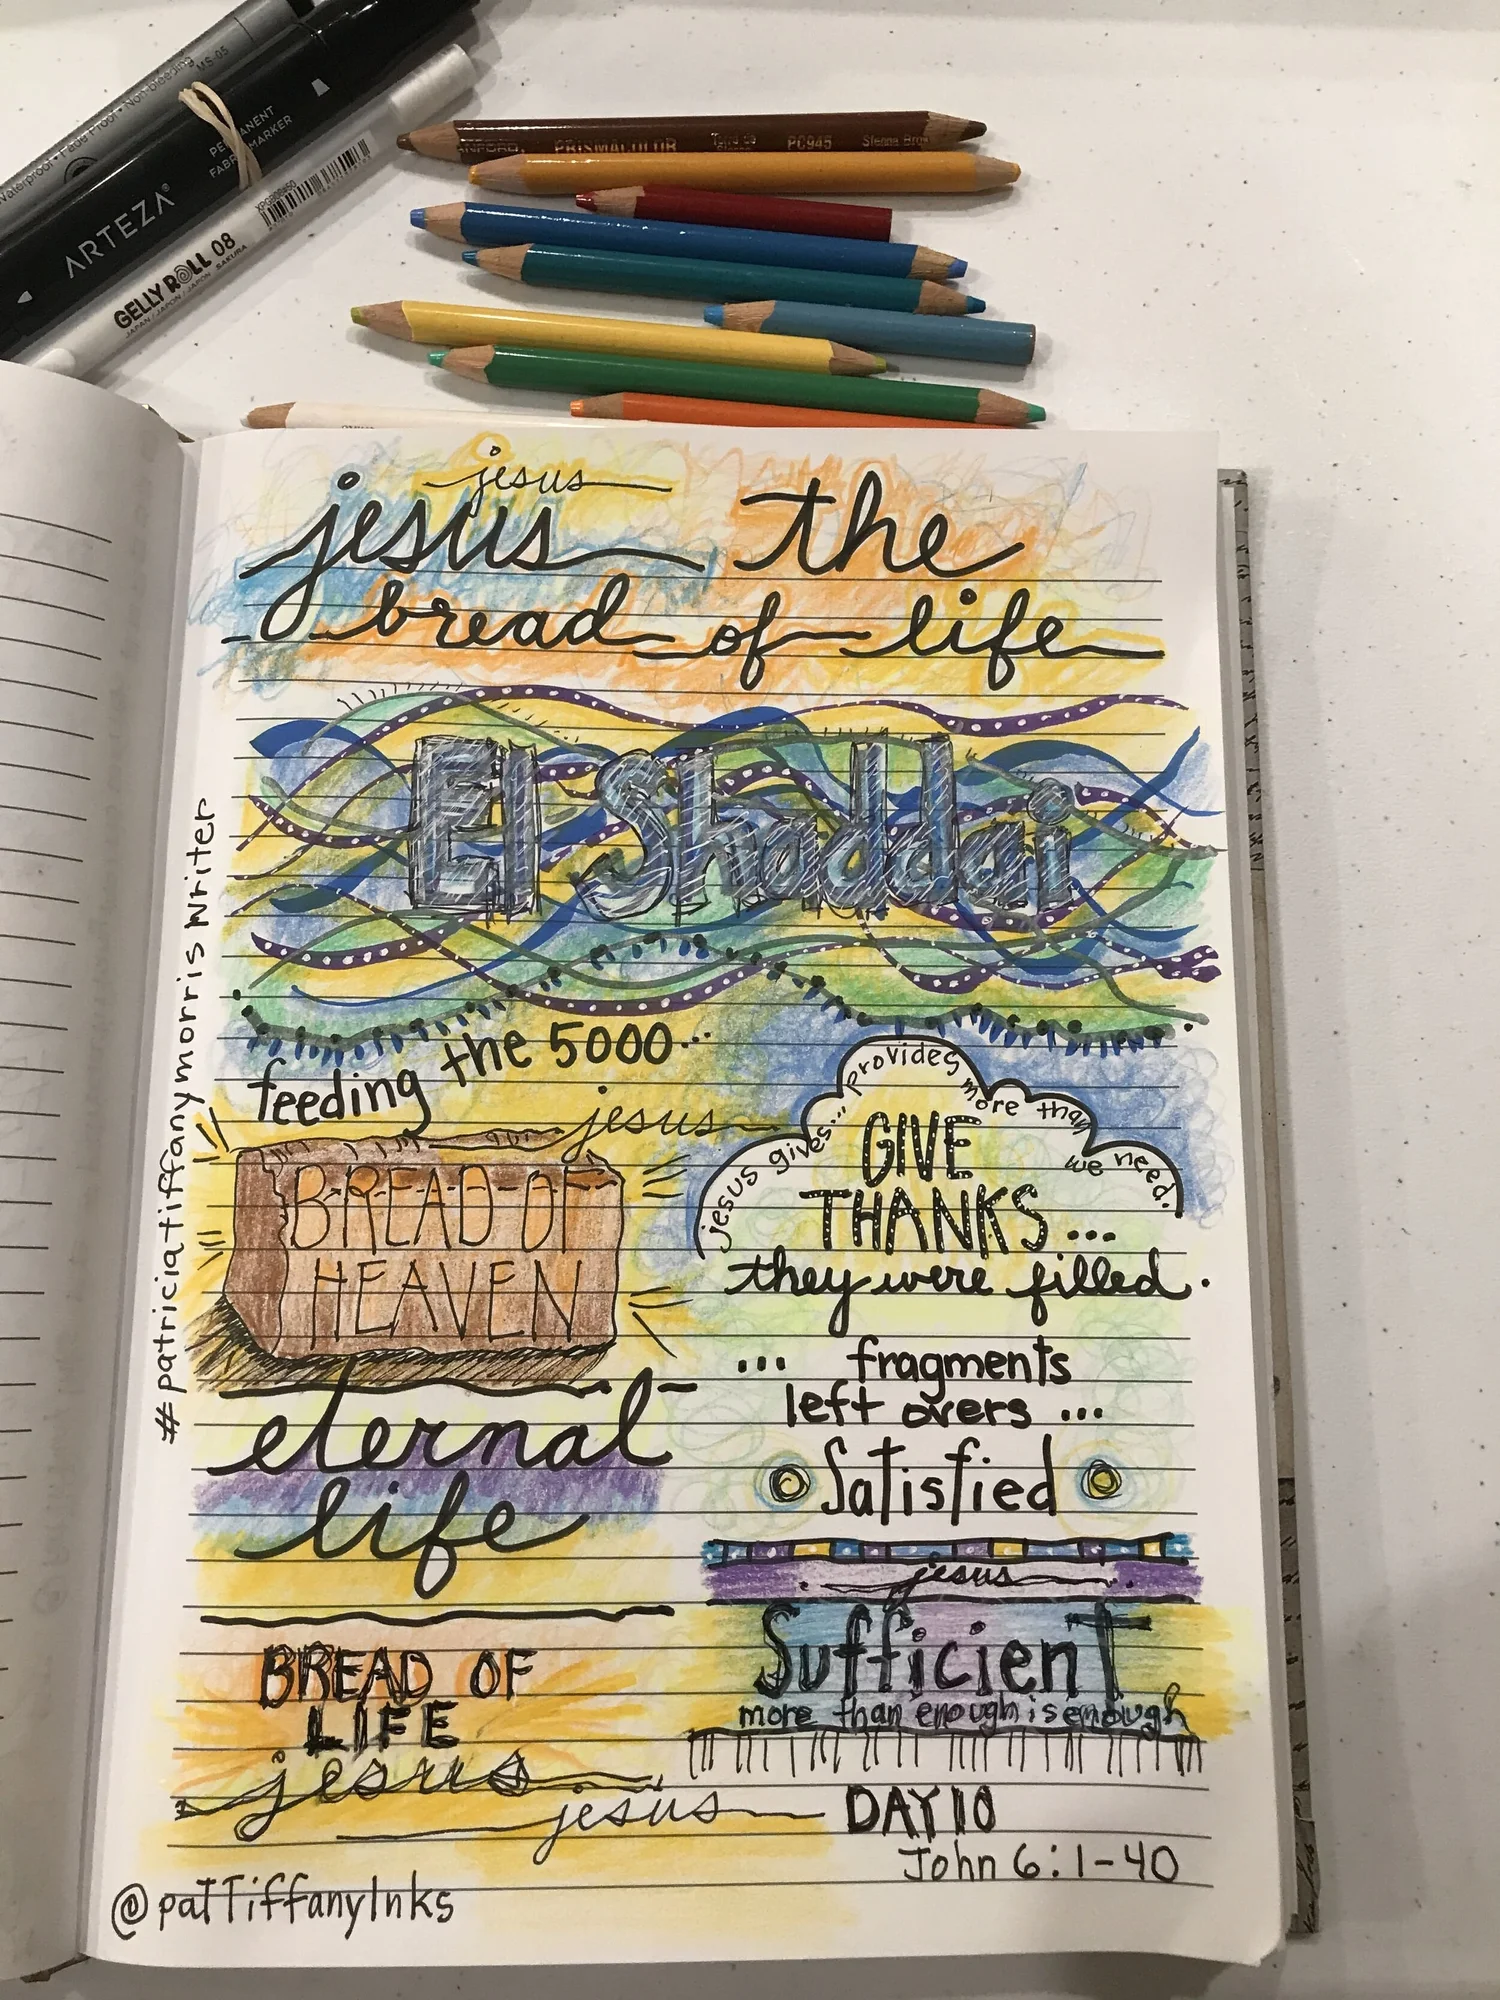 Waterproof • Fade Proof • Non-bleeding
MS-05
ARTEZA®
PERMANENT
FABRIC MARKER
GELLY ROLL 08
JAPAN / JAPON / JAPON SAKURA
PRISMACOLOR
PC945
Sienna Brow
jesus
jesus the
bread of life
El Shaddai
feeding the 5000...
jesus
BREAD OF
HEAVEN
eternal
life
BREAD OF
LIFE
jesus
jesus
jesus gives... provides more than we need.
GIVE
THANKS...
they were filled.
... fragments
left overs ...
Satisfied
jesus
Sufficient
more than enough is enough
DAY 10
John 6:1-40
#patriciatiffanymorris Writer
@patTiffanyInks